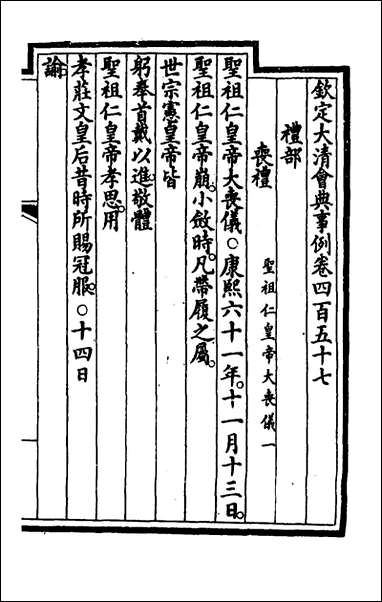 欽定大清會典事例卷四百五十七
禮部
喪禮 聖祖仁皇帝大喪儀一
聖祖仁皇帝大喪儀○康熙六十一年。十一月十三日。
聖祖仁皇帝崩。小斂時。凡帶履之屬。
世宗憲皇帝皆
躬奉首戴以進敬體
聖祖仁皇帝孝思。用
孝莊文皇后昔時所賜冠服。○十四日
諭。